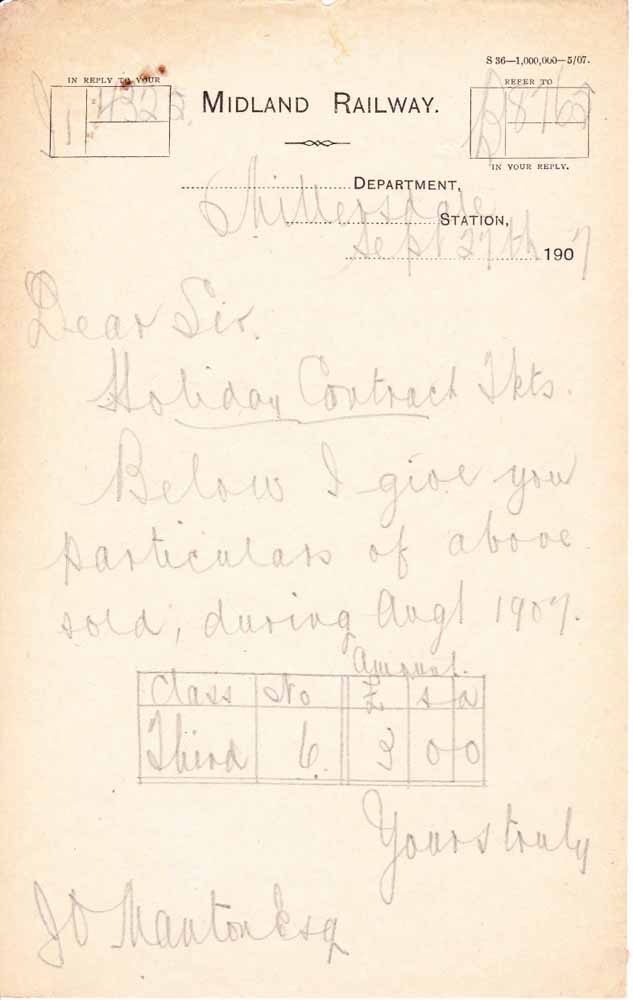 S 36—1,000,000—5/07.
IN REPLY TO YOUR
REFER TO
4325
B 8765
MIDLAND RAILWAY.
IN YOUR REPLY.
DEPARTMENT,
Millersdale STATION,
Sept 27th 1907
Dear Sir.
Holiday Contract Tkts.
Below I give you
particulars of above
sold, during Augt 1907.
Amount.
Class No £ s d
Third 6. 3 0 0
Yours truly
J O Manton Esq